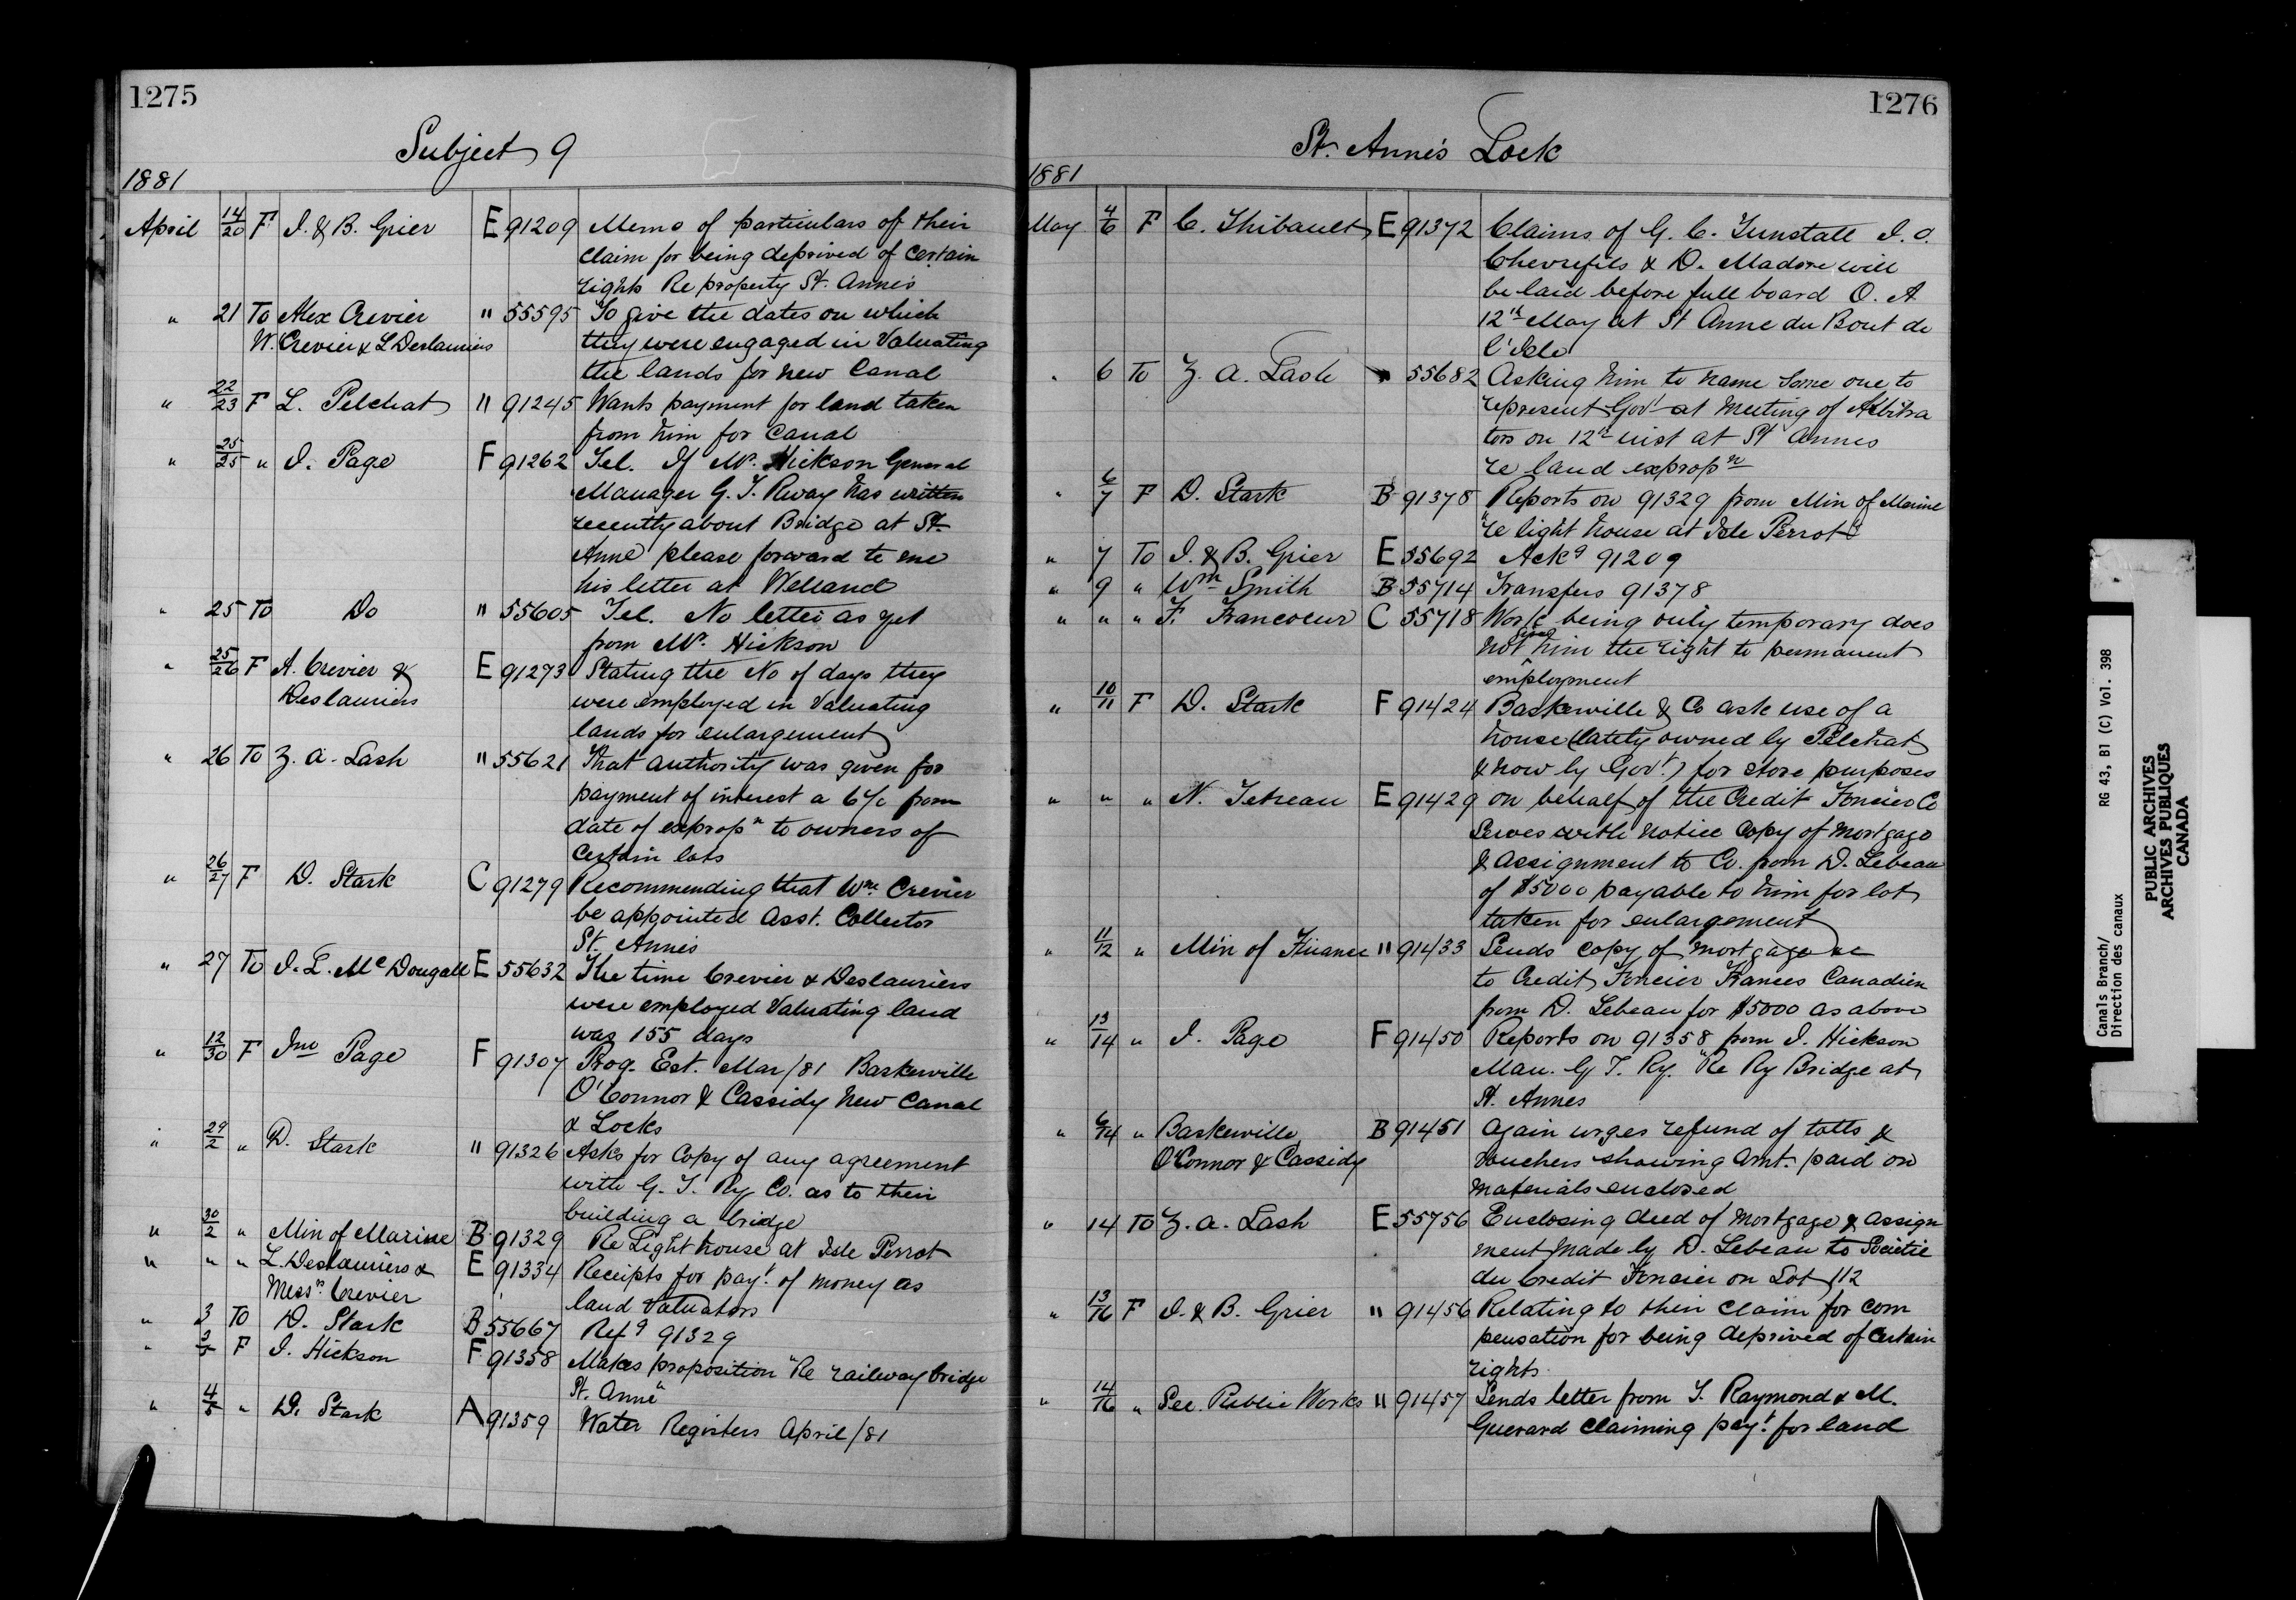 1275
Subject 9
1881
April 14/20 F J. & B. Grier E 91209 Memo of particulars of their
claim for being deprived of certain
rights Re property St. Annes
" 21 To Alex Crevier " 55595 To give the dates on which
W. Crevier & L Deslauriers they were engaged in Valuating
the lands for new Canal
" 22/23 F L. Pelchat " 91245 Wants payment for land taken
from him for Canal
" 25/25 " J. Page F 91262 Tel. If Mr. Hickson General
Manager G. T. Rway has written
recently about Bridge at St.
Anne please forward to me
his letter at Welland
" 25 To Do " 55605 Tel. No letter as yet
from Mr. Hickson
" 25/26 F A. Crevier & E 91273 Stating the No of days they
Deslauriers were employed in Valuating
lands for enlargement
" 26 To Z. A. Lash " 55621 That authority was given for
payment of interest a 6% from
date of expropn to owners of
certain lots
" 26/27 F D. Stark C 91279 Recommending that Wm Crevier
be appointed Asst. Collector
St. Annes
" 27 To J. L. McDougall E 55632 The time Crevier & Deslauriers
were employed Valuating land
was 155 days
" 12/30 F Jno Page F 91307 Prog. Est. Mar/81 Baskerville
O'Connor & Cassidy New Canal
& Locks
" 29/2 " D. Stark " 91326 Asks for Copy of any agreement
with G. T. Ry Co. as to their
building a bridge
" 30/2 " Min of Marine B 91329 Re Light house at Isle Perrot
" " " L. Deslauriers & E 91334 Receipts for payt. of money as
Messrs Crevier land Valuators
" 3 To D. Stark B 55667 Refg 91329
" 3/5 F J. Hickson F 91358 Makes proposition "Re railway bridge
St. Anne"
" 4/5 " D. Stark A 91359 Water Registers April/81
1276
St. Anne's Lock
1881
May 4/6 F C. Thibault E 91372 Claims of G. C. Tunstall J. O.
Chevrefils & D. Madore will
be laid before full board O. A
12th May at St Anne du Bout de
l'Isle
" 6 To Z. A. Lash " 55682 Asking him to name some one to
represent Govt at meeting of Arbitra
tors on 12th inst at St Annes
re land expropn
" 6/7 F D. Stark B 91378 Reports on 91329 from Min of Marine
"re light house at Isle Perrot"
" 7 To J. & B. Grier E 55692 Ackg 91209
" 9 " Wm Smith B 55714 Transfers 91378
" " " F. Francoeur C 55718 Work being only temporary does
not give him the right to permanent
employment
" 10/11 F D. Stark F 91424 Baskerville & Co ask use of a
house (lately owned by Pelchat
& now by Govt.) for store purposes
" " " N. Tetreau E 91429 on behalf of the Credit Foncier Co
Serves with notice Copy of Mortgage
& Assignment to Co. from D. Lebeau
of $5000 payable to him for lot
taken for enlargement
" 11/12 " Min of Finance " 91433 Sends copy of mortgage &c
to Credit Foncier Francs Canadien
from D. Lebeau for $5000 as above
" 13/14 " J. Page F 91450 Reports on 91358 from J. Hickson
Man. G T. Ry. "Re Ry Bridge at
St. Annes
" 6/14 " Baskerville B 91451 Again urges refund of tolls &
O'Connor & Cassidy vouchers showing Amt. paid on
materials enclosed
" 14 To Z. A. Lash E 55756 Enclosing deed of Mortgage & Assign
ment made by D. Lebeau to Societie
du Credit Foncier on Lot 112
" 13/16 F J. & B. Grier " 91456 Relating to their claim for com
pensation for being deprived of certain
rights
" 14/16 " Sec. Public Works " 91457 Sends letter from T. Raymond & M.
Guerard claiming payt. for land
Canals Branch/ RG 43, B1 (C) Vol. 398
Direction des canaux
PUBLIC ARCHIVES
ARCHIVES PUBLIQUES
CANADA